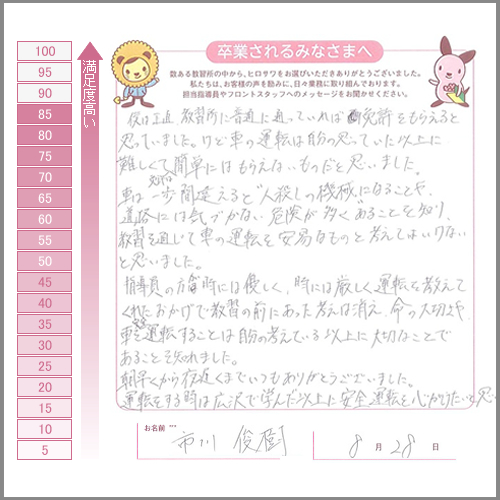 100
95
90
85
80
75
70
65
60
55
50
45
40
35
30
25
20
15
10
5
満足度高い
卒業されるみなさまへ
数ある教習所の中から、ヒロサワをお選びいただきありがとうございました。
私たちは、お客様の声を励みに、日々業務に取り組んでおります。
担当指導員やフロントスタッフへのメッセージをお聞かせください。
僕は正直、教習所に普通に通っていれば免許をもらえると
思っていました。けど車の運転は自分の思っていた以上に
難しくて簡単にはもらえないものだと思いました。
車は一歩間違えると"人殺しの機械"になることや、
道路には気づかない危険が多くあることを知り、
教習を通じて車の運転を安易なものと考えてはいけない
と思いました。
指導員の方々 時には優しく、時には厳しく運転を教えて
くれたおかげで教習の前にあった考えは消え、命の大切さや、
車を運転することは自分の考えている以上に大切なことで
あることを知れました。
朝早くから夜遅くまでいつもありがとうございました。
運転をする時は広沢で学んだ以上に安全運転を心がけたいと思い
お名前
市川 俊樹
8月28日